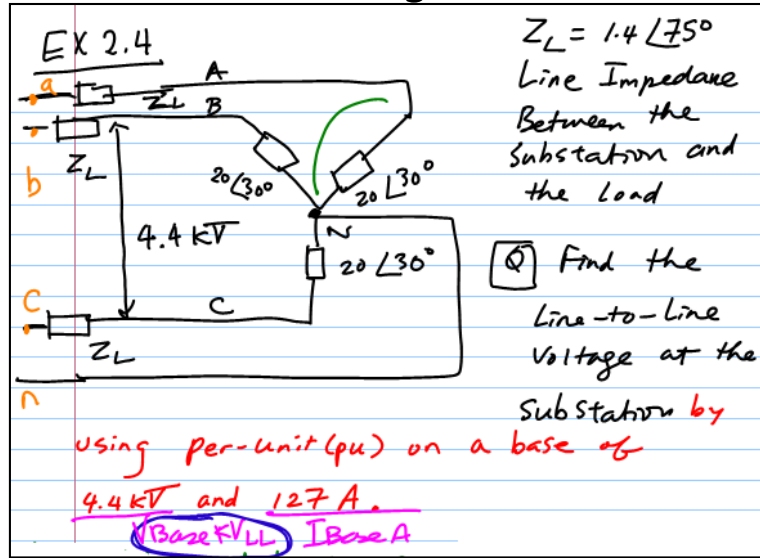 EX 2.4
a
A
Z_L
B
Z_L
b
20∠30°
20∠30°
4.4 kV
N
20∠30°
C
C
Z_L
n
Z_L = 1.4 ∠75°
Line Impedane
Between the
Substation and
the load
Q Find the
Line-to-Line
Voltage at the
Substation by
using per-unit (pu) on a base of
4.4 kV and 127 A.
VBase KV_LL IBase A